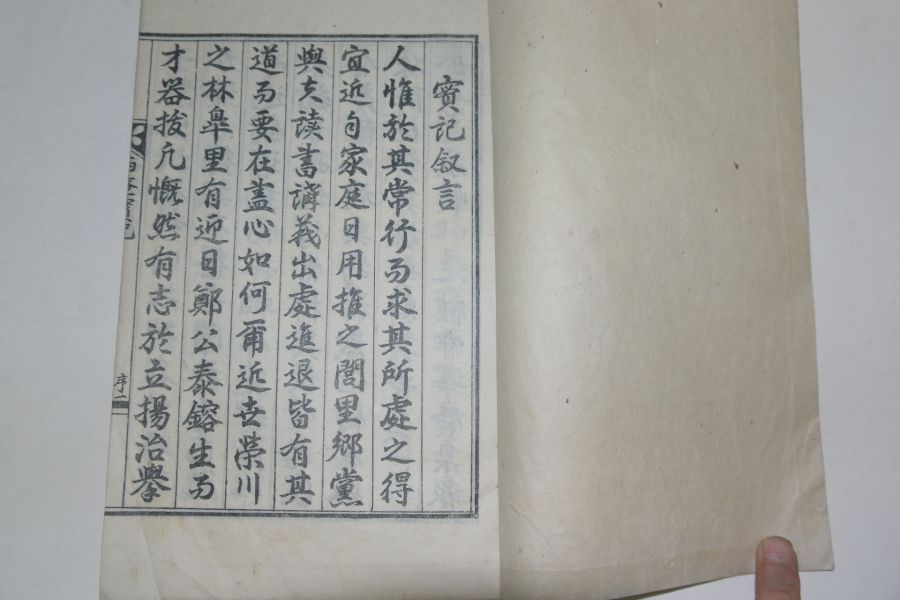 實記叙言
人惟於其常行而求其所處之得
宜近自家庭日用推之閭里鄉黨
與夫读書講義出處進退皆有其
道而要在盖心如何爾近世榮川
之林皐里有近日鄭公泰鎔生而
才器拔凡慨然有志於立揚治擧
序一